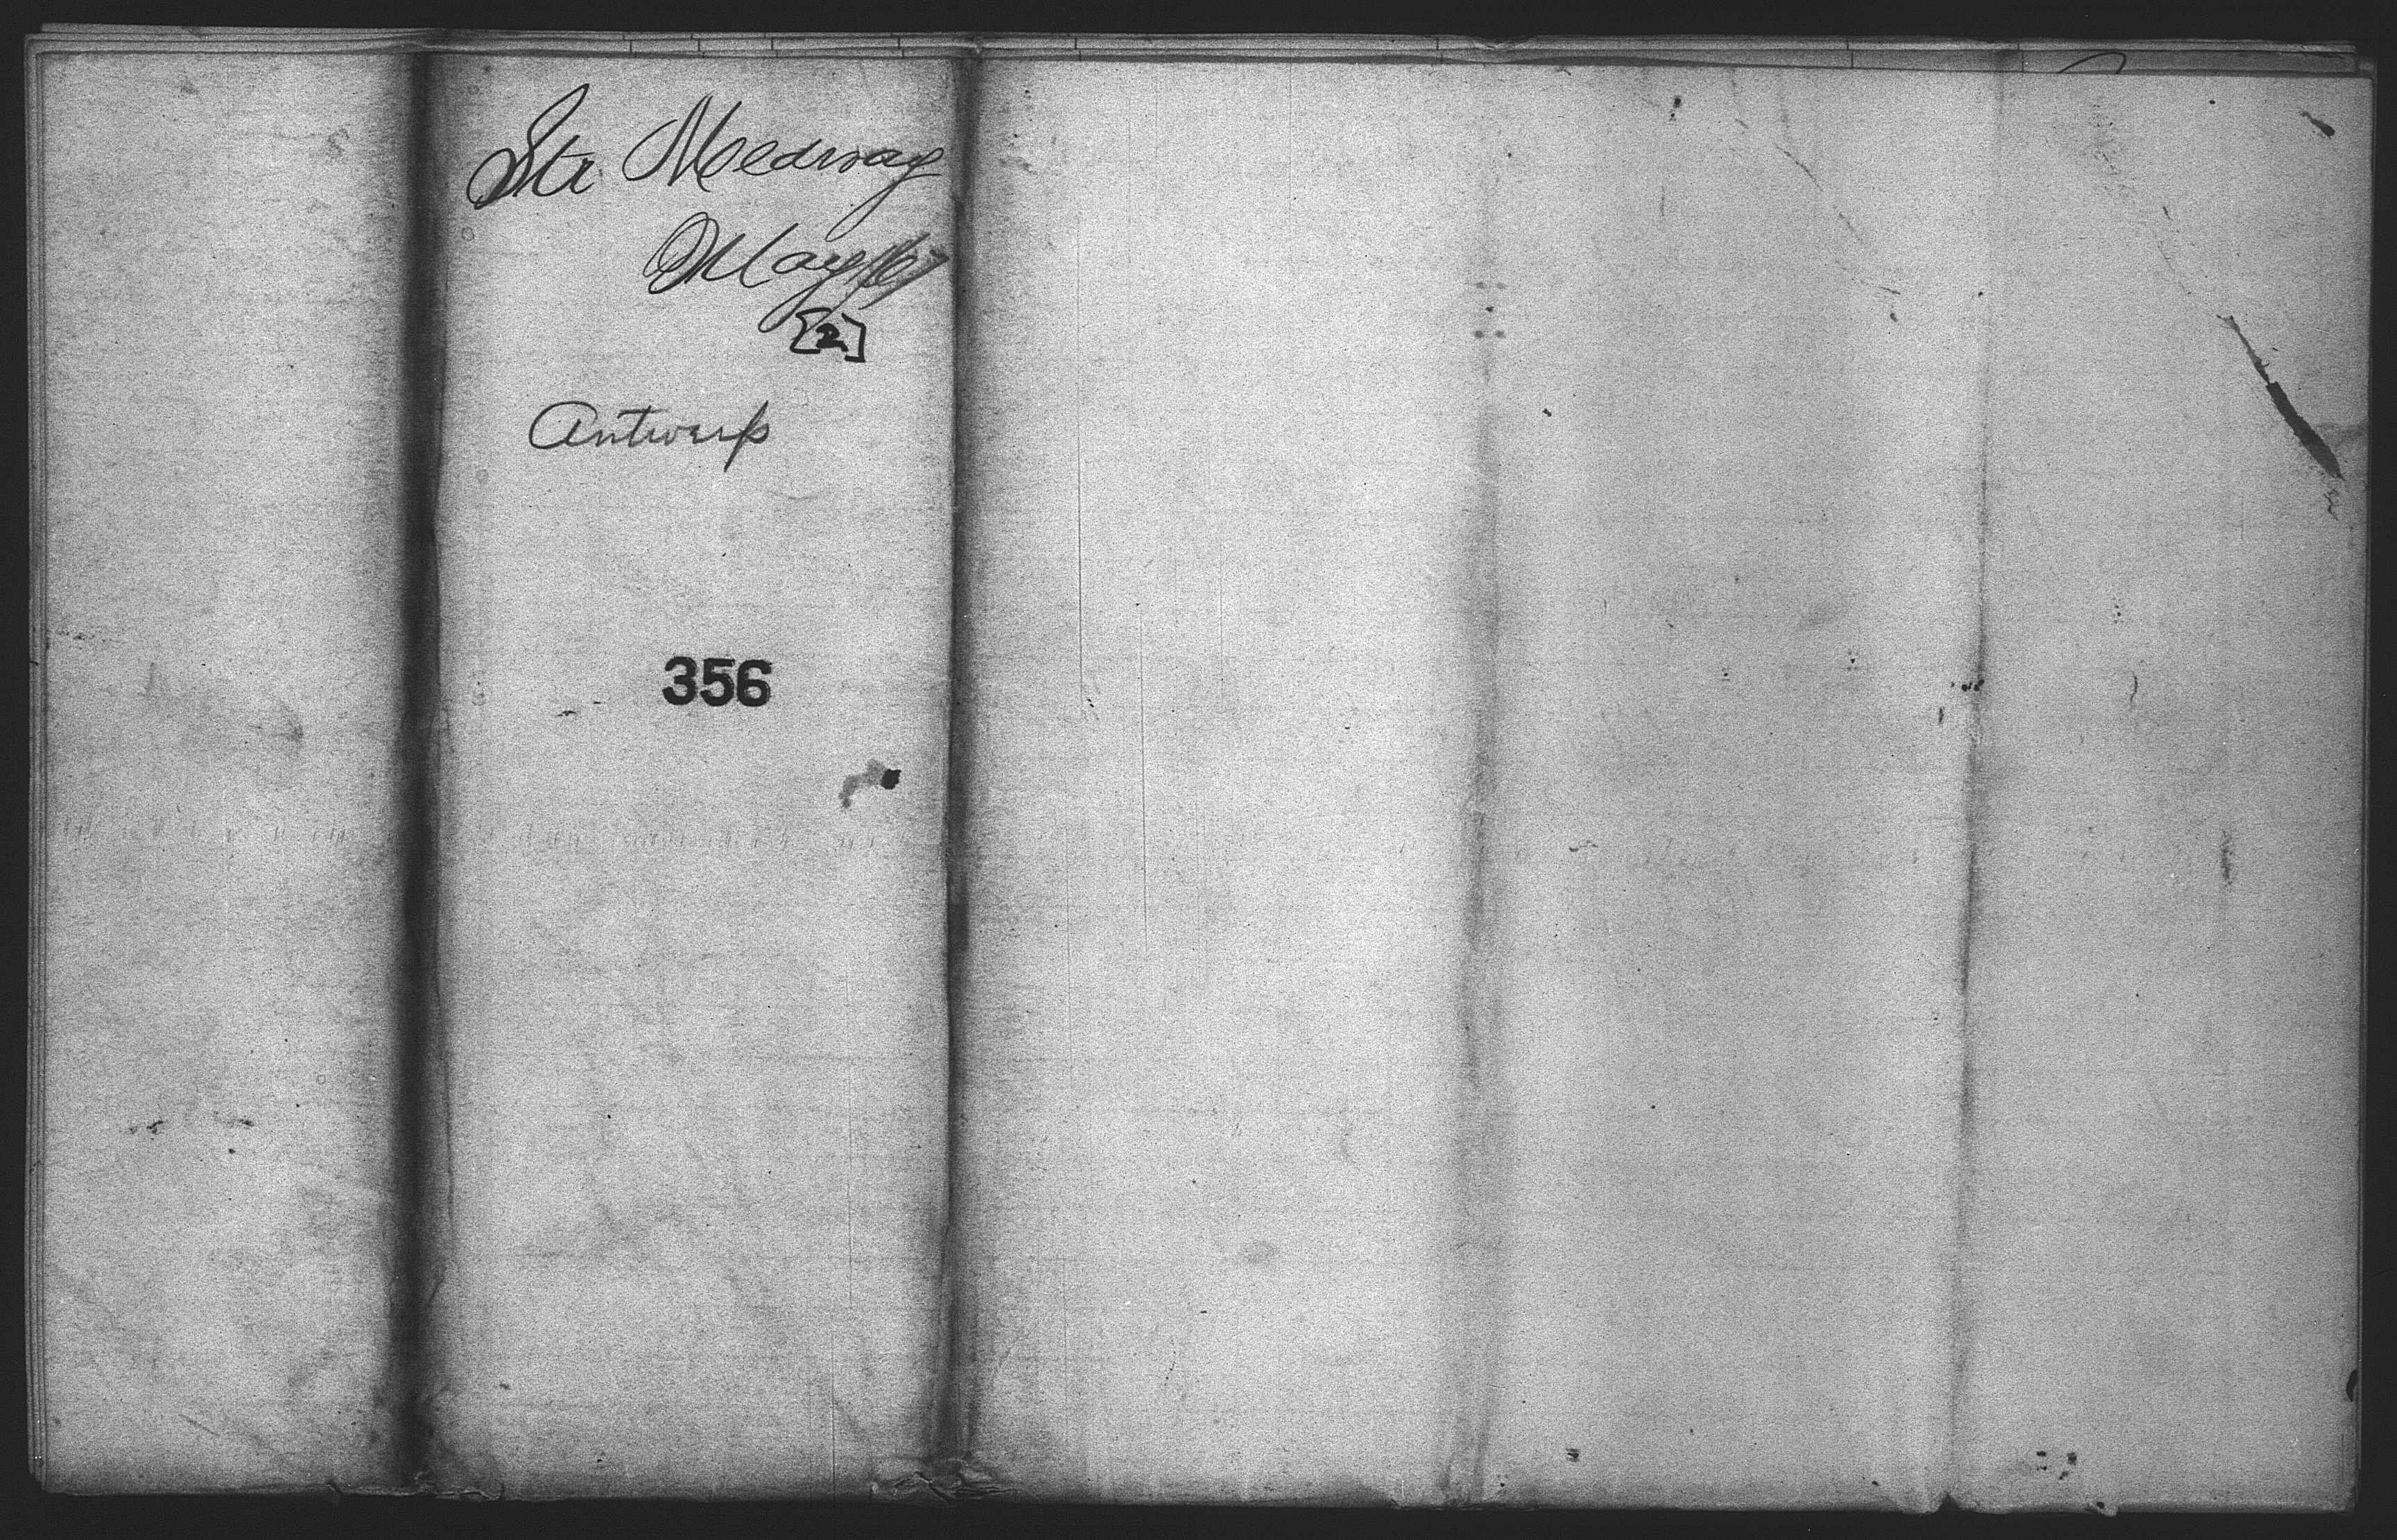 Str. Medway
May
[2]
Antwerp
356